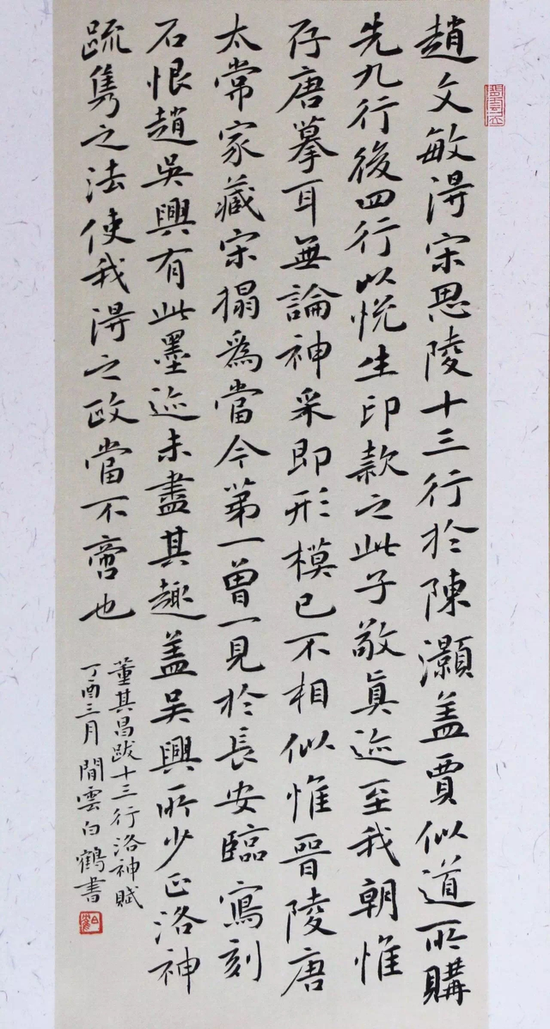 趙文敏淂宋思陵十三行於陳灝盖賈似道所購
先九行後四行以悦生印款之此子敬真迹至我朝惟
存唐摹耳無論神采即形模已不相似惟晉陵唐
太常家藏宋搨為當今第一曾一見於長安臨寫刻
石恨趙吳興有此墨迹未盡其趣盖吳興所少正洛神
疏雋之法使我淂之政當不啻也
董其昌跋十三行洛神賦
丁酉三月閒雲白鶴書